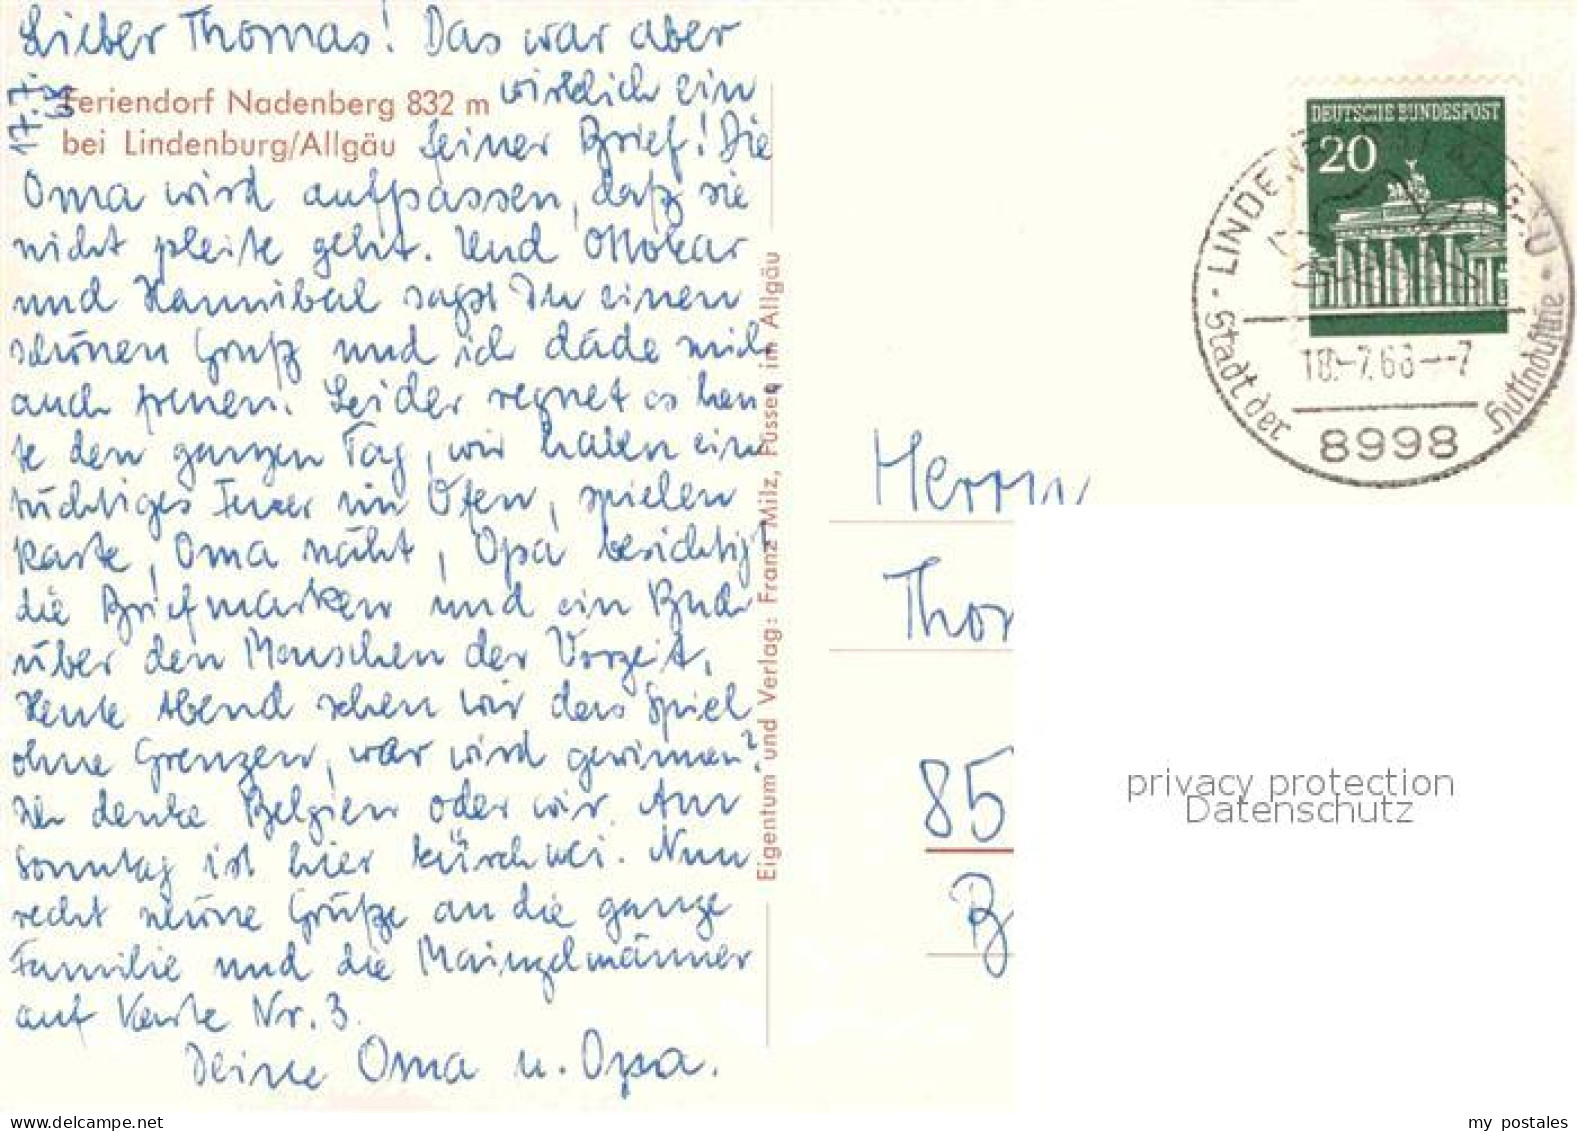 Lieber Thomas! Das war aber
17.7.
68
Feriendorf Nadenberg 832 m
wirklich ein
bei Lindenburg/Allgäu
feiner Brief! Die
Oma wird aufpassen, daß sie
nicht pleite geht. Und Ottokar
und Hannibal sagst Du einen
schönen Gruß und ich däde mich
auch freuen. Leider regnet es heu-
te den ganzen Tag, wir haben ein
tüchtiges Feuer im Ofen, spielen
Karte, Oma näht, Opa besichtigt
die Briefmarken und ein Buch
über den Menschen der Vorzeit.
Heute Abend sehen wir das Spiel
ohne Grenzen, wer wird gewinnen?
Ich denke Belgien oder wir. Am
Sonntag ist hier Kürchwei. Nun
recht schöne Grüße an die ganze
Familie und die Mainzelmänner
auf Karte Nr. 3.
Deine Oma u. Opa.
Eigentum und Verlag: Franz Milz, Füssen im Allgäu
DEUTSCHE BUNDESPOST
20
Stadt der Hutindustrie
18.-7.68--7
8998
Herrn
Thom
85
privacy protection
Datenschutz
my postales